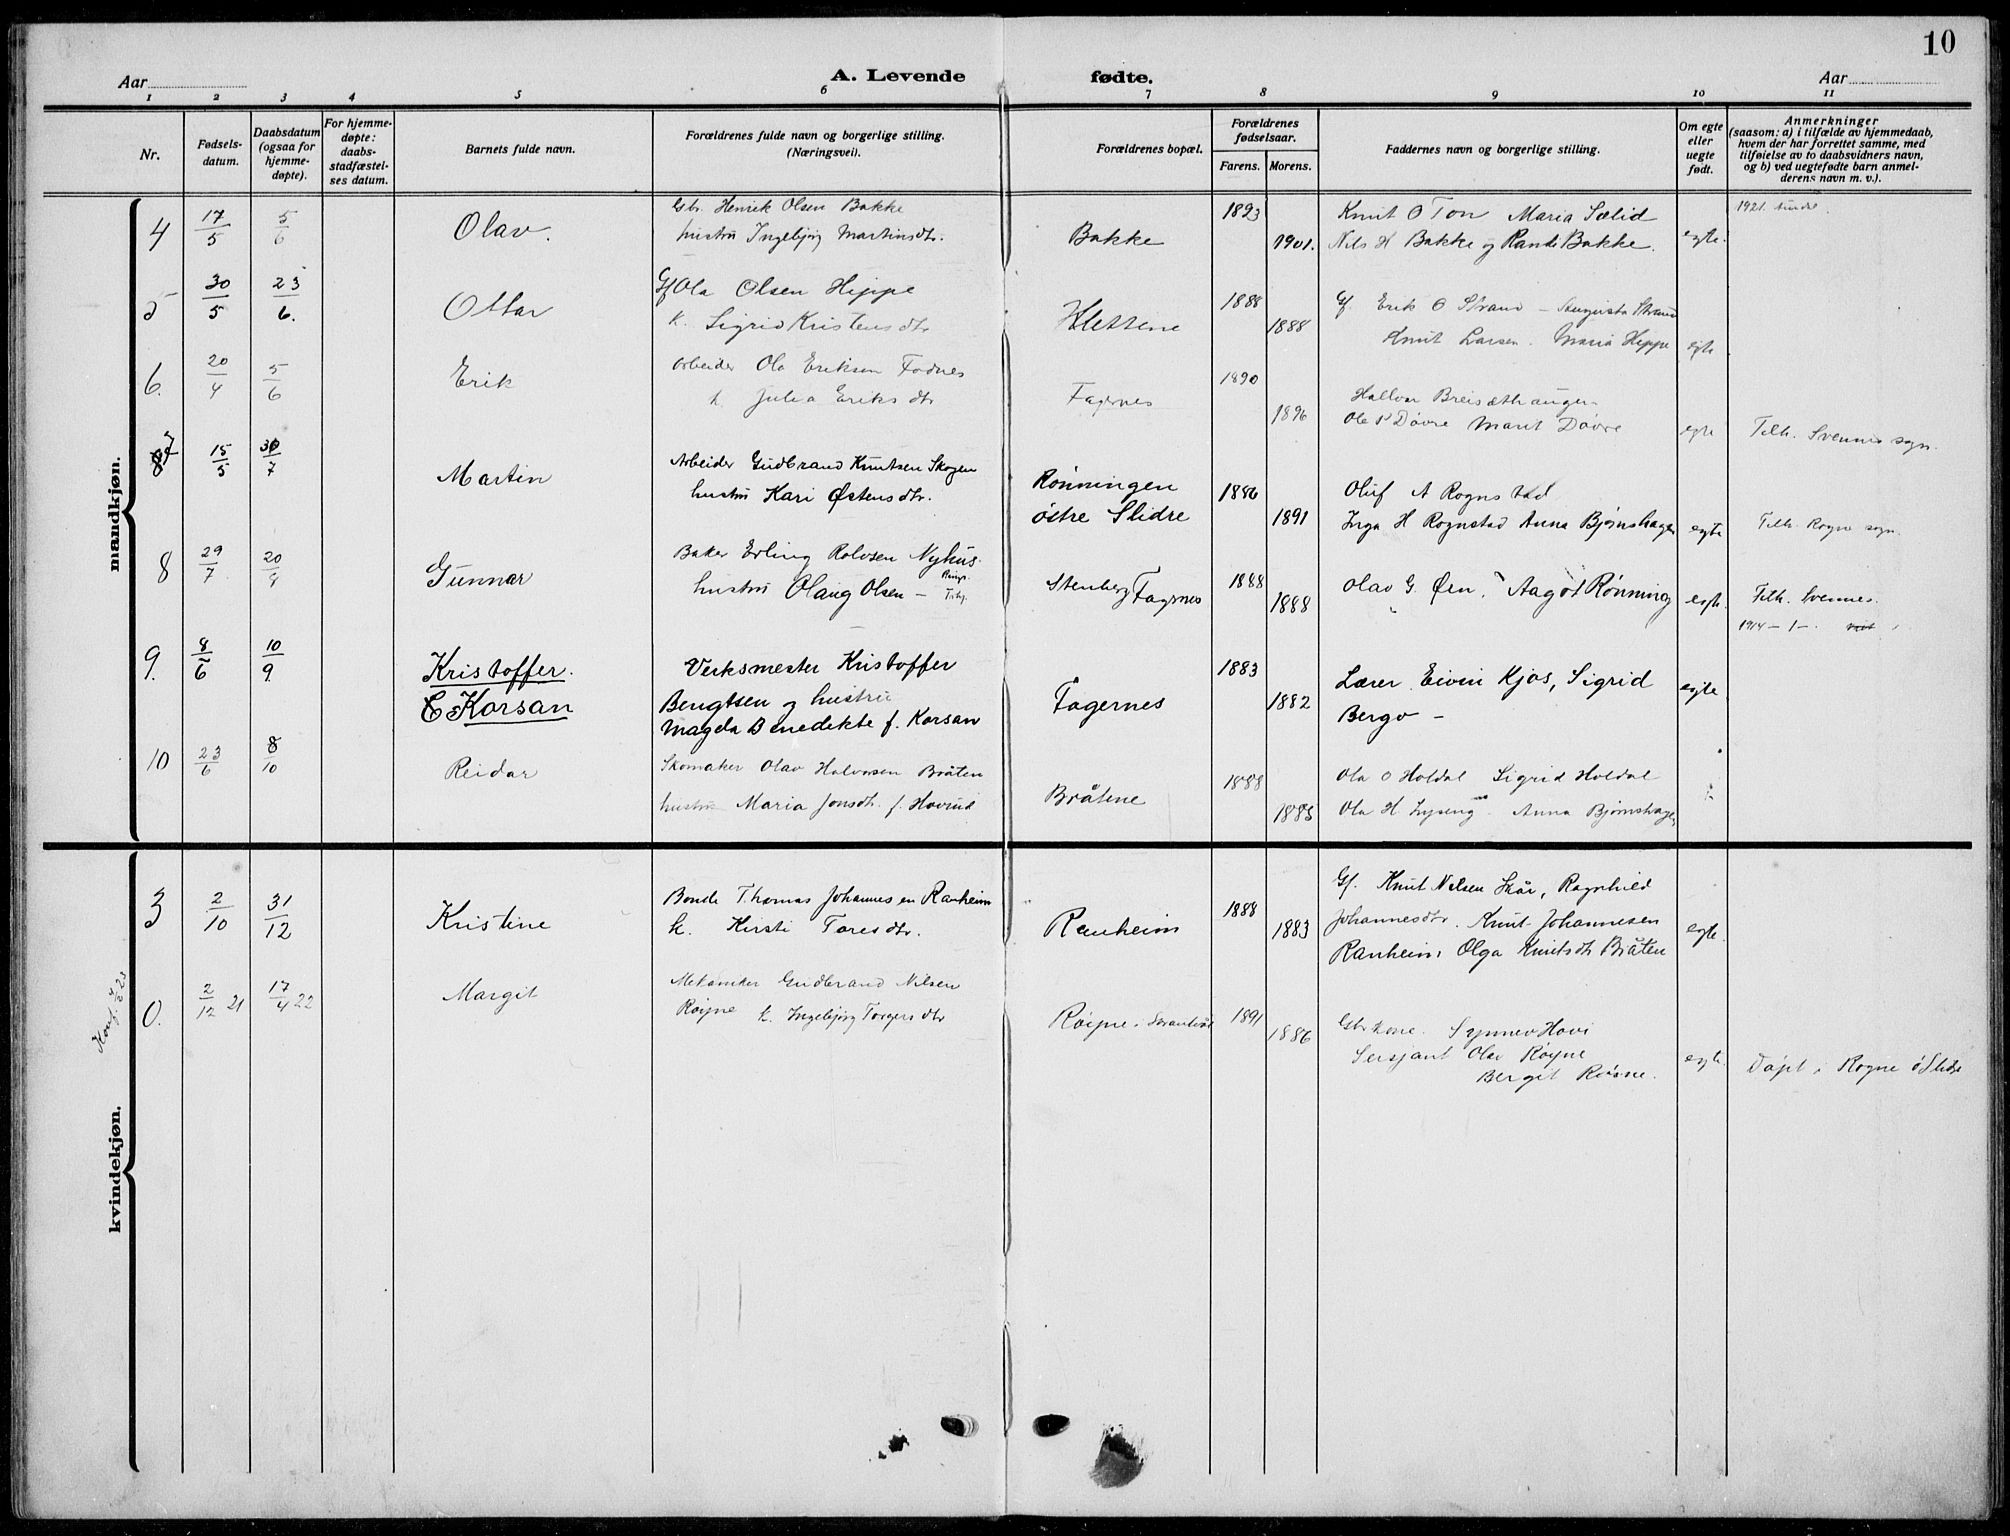 10
Aar
A. Levende fødte.
Aar
1 2 3 4 5 6 7 8 9 10 11
Nr.
Fødsels-
datum.
Daabsdatum
(ogsaa for
hjemme-
døpte).
For hjemme-
døpte:
daabs-
stadfæstel-
ses datum.
Barnets fulde navn.
Forældrenes fulde navn og borgerlige stilling.
(Næringsvei).
Forældrenes bopæl.
Forældrenes
fødselsaar.
Farens. Morens.
Faddernes navn og borgerlige stilling.
Om egte
eller
uegte
født.
Anmerkninger
(saasom: a) i tilfælde av hjemmedaab,
hvem der har forrettet samme, med
tilføielse av to daabsvidners navn,
og b) ved uegtefødte barn anmel-
derens navn m. v.).
mandkjøn.
4 17/5 5/6 Olav.
Gbr. Henrik Olsen Bakke
hustru Ingebjørg Martinsdtr.
Bakke 1893 1901.
Knut O Ton Maria Sælid
Nils H Bakke og Randi Bakke.
egte.
1921
5 30/5 23/6. Ottar
Gf Ola Olsen Hippe
k. Sigrid Kristensdtr
Klettene 1888 1888
Gf. Erik O Strand - Augusta Strand
Knut Larsen. Maria Hippe
egte
6. 20/4 5/6 Erik
Arbeider Ola Eriksen Fodnes
k. Julia Eriksdtr
Fagernes 1890 1896
Hallvar
Ole P Døvre Marit Døvre
egte
Tilh. Svennes sogn.
7 15/5 /7 Martin
Arbeider Gudbrand Knutsen Skogen
hustru Kari Østensdtr.
Rønningen
østre Slidre
1886 1891
Oluf A Rognstad
Inga H Rognstad Anna Bjørnshagen
egte
Tilh. Rogne sogn.
8 29/7 20/9 Gunnar
Baker Erling Rolvsen Nyhus
hustru Olaug Olsen -
Stenberg Fagernes 1888 1888
Olav G. Øen, Aagot Rønning
egte.
Tilh. Svennes.
1914 - 1 -
9. 8/6 10/9. Kristoffer.
C Korsan
Verksmester Kristoffer
Bengtsen og hustru
Magda Benedikte f. Korsan
Fagernes 1883 1882
Lærer Eivin Kjos, Sigrid
Bergo -
egte
10 23/6 8/10 Reidar
Skomaker Olav Halvorsen Bråten
hustru Maria Jonsdtr. f. Hovrud
Bråtene 1888 1885
Ola O Holdal Sigrid Holdal
Ola H Lyseng Anna Bjørnshagen
kvindekjøn.
3 2/10 31/12 Kristine
Bonde Thomas Johannesen Ranheim
k. Kirsti Toresdtr.
Ranheim 1888 1883
Gf. Knut Nilsen Skår, Ragnhild
Johannesdtr. Knut Johannesen
Ranheim, Olga Knutsdtr Bråten
egte.
Konf.
0. 2/12 21 17/4 22 Margit
Mekaniker Gudbrand Nilsen
Røyne k. Ingebjørg Torgersdtr
Røyne. 1891 1886
Gbrkone. Synnev Hovi
Sersjant Olav Røyne
Bergit Røyne.
egte.
Døpt i Rogne ø Slidre